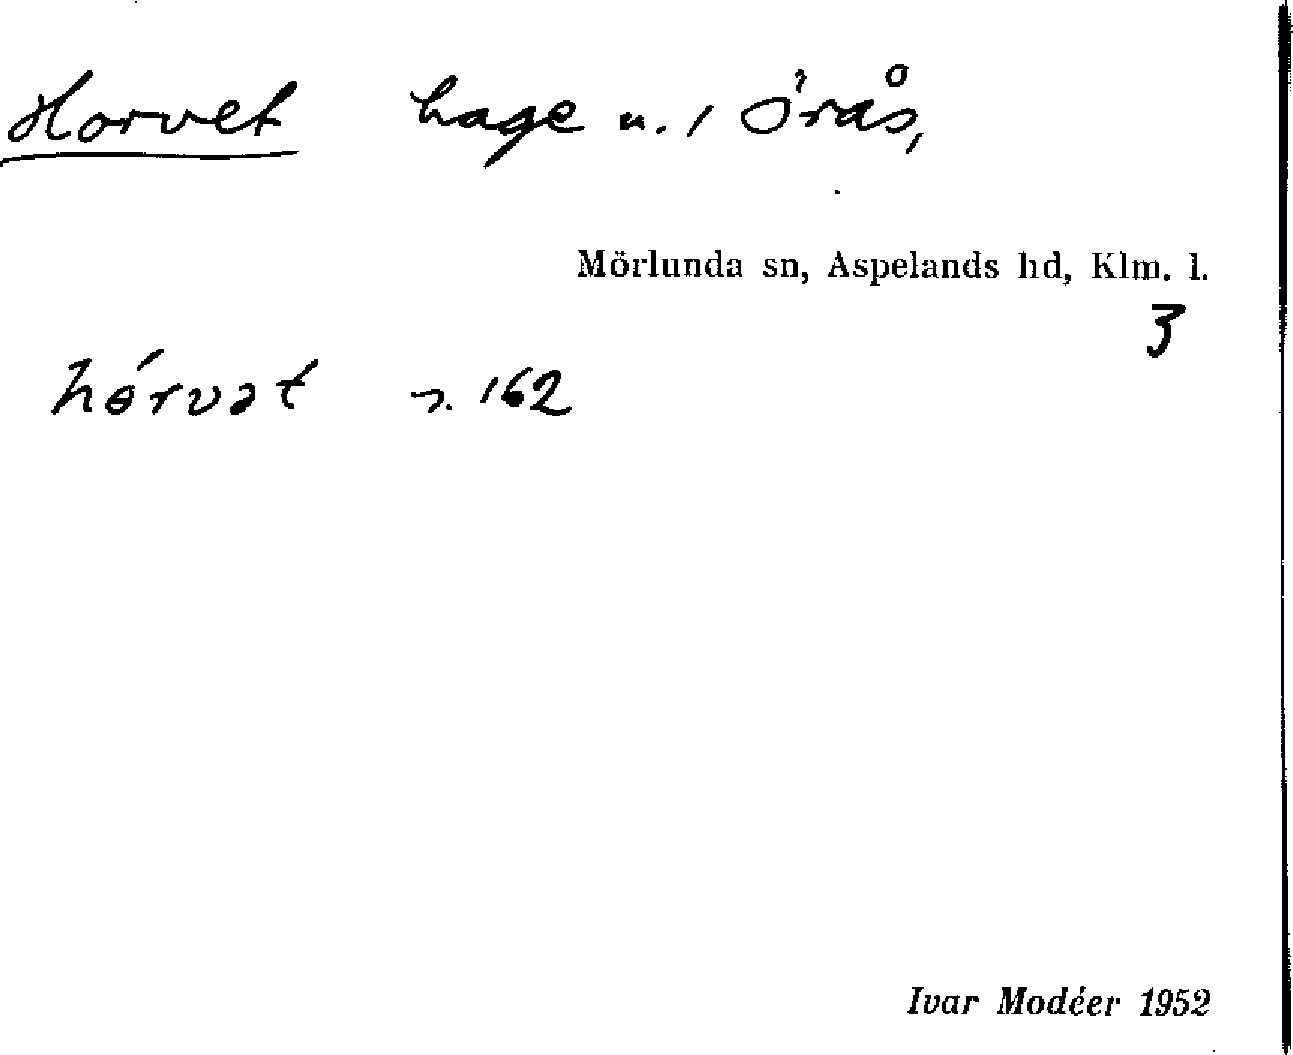 Horvet hage u. 1 Örås,
Mörlunda sn, Aspelands hd, Klm. l.
3
hórvət s. 162
Ivar Modéer 1952